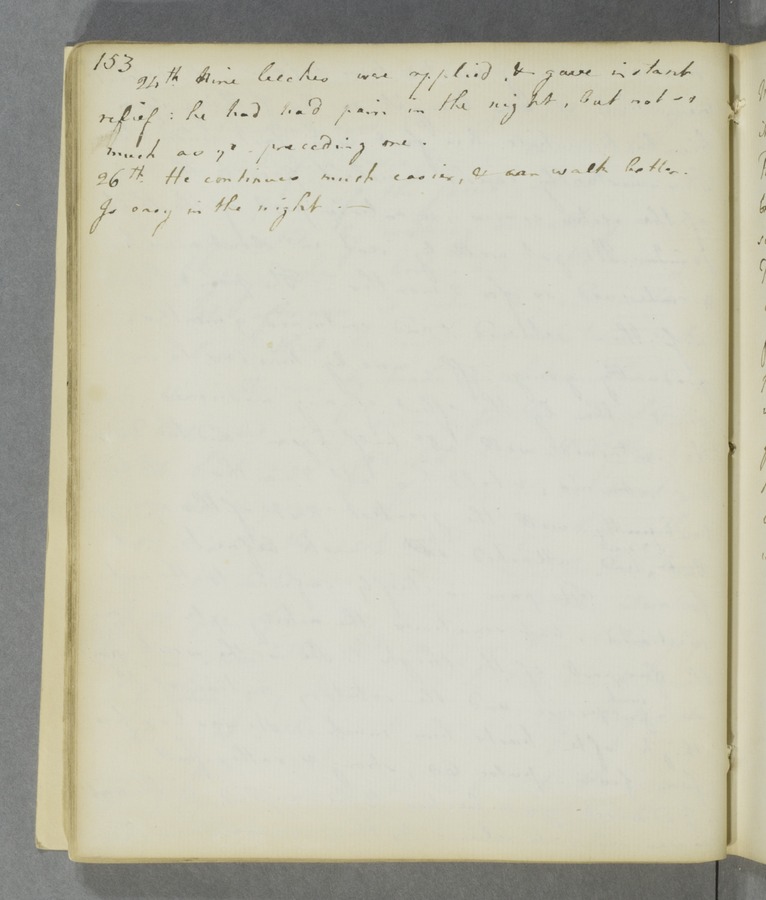 153
24th Nine leeches were applied, & gave instant
relief: he had had pain in the night, but not so
much as ye. preceding one.
26th He continues much easier, & can walk better.
Is easy in the night. —